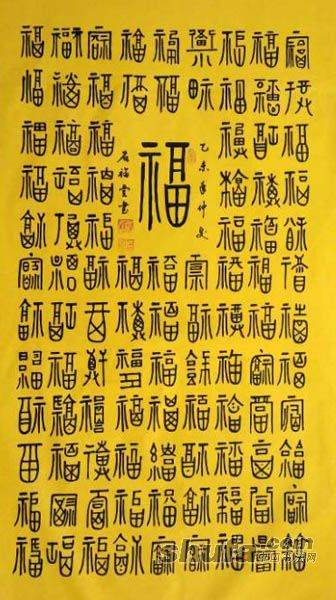 福福福福福福福福福
福福福福福福福福福
福福福福福福
福福福福福福
福福福福福福
福
乙未年仲夏
福福福福福福福福福
福福福福福福福福福
福福福福福福福福福
福福福福福福福福福
福福福福福福福福福
福福福福福福福福福
福福福福福福福福福